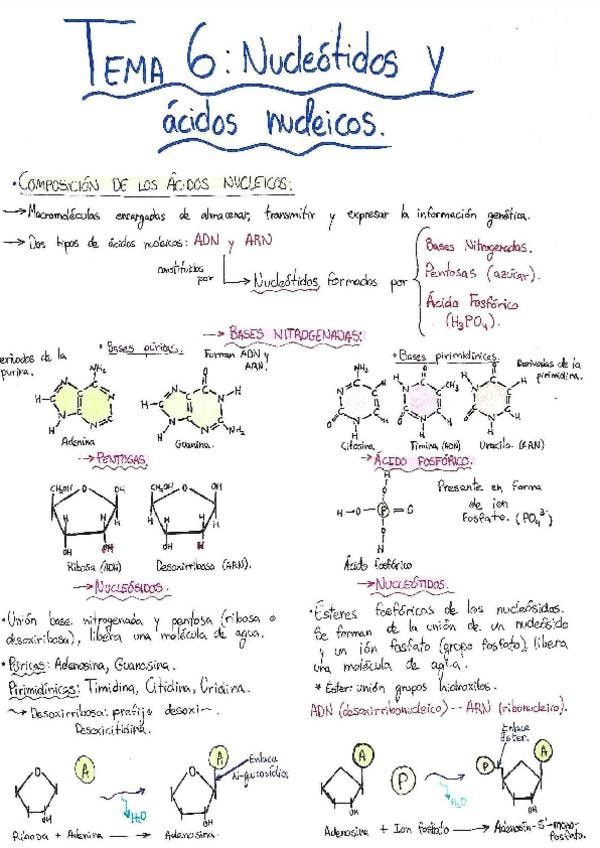 TEMA 6: Nucleótidos y
ácidos nucleicos.
• COMPOSICIÓN DE LOS ÁCIDOS NUCLEICOS:
→ Macromoléculas encargadas de almacenar, transmitir y expresar la información genética.
→ Dos tipos de ácidos nucleicos: ADN y ARN
constituidos
por
→ Nucleótidos, formados por
Bases Nitrogenadas.
Pentosas (azúcar).
Ácido Fosfórico
(H₃PO₄).
→ BASES NITROGENADAS:
derivados de la
purina.
• Bases púricas.
Forman ADN y
ARN.
• Bases pirimidínicas.
Derivadas de la
pirimidina.
Adenina
Guanina.
Citosina.
Timina (ADN)
Uracilo. (ARN)
→ PENTOSAS
CH₂OH O OH
H H H H
OH OH
CH₂OH O OH
H H H H
OH H
Ribosa (ADN)
Desoxirribosa (ARN).
→ ÁCIDO FOSFÓRICO.
H
O
H-O-P=O
O
H
Ácido fosfórico
Presente en forma
de ion
fosfato. (PO₄³⁻)
→ NUCLEÓSIDOS.
• Unión base nitrogenada y pentosa (ribosa o
desoxiribosa), libera una molécula de agua.
• Púricas: Adenosina, Guanosina.
Pirimidínicas: Timidina, Citidina, Uridina.
⇝ Desoxirribosa: prefijo desoxi-.
Desoxicitidina.
A
H₂O
A
Enlace
N-glucosídico
OH
OH
Ribosa + Adenina → Adenosina.
→ NUCLEÓTIDOS.
• Ésteres fosfóricos de los nucleósidos.
Se forman de la unión de un nucleósido
y un ión fosfato (grupo fosfato), libera
una molécula de agua.
* Éster: unión grupos hidroxilos.
ADN (desoxirribonucleico) -- ARN (ribonucleico).
A
P
H₂O
Enlace
éster.
P
A
OH
OH
Adenosina + Ion fosfato → Adenosin-5'-mono-
fosfato.